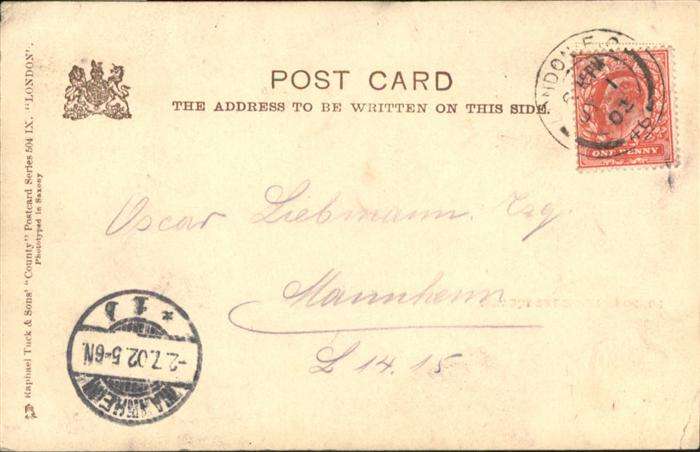 POST CARD
THE ADDRESS TO BE WRITTEN ON THIS SIDE.
Raphael Tuck & Sons' "County" Postcard Series 504 IX. "LONDON".
Phototyped in Saxony
LONDON E.C.
JY 1
02
46
ONE PENNY
Oscar Liebmann. Esq
Mannheim
L 14. 15
MANNHEIM
-2.7.02. 5-6N.
* 1 b